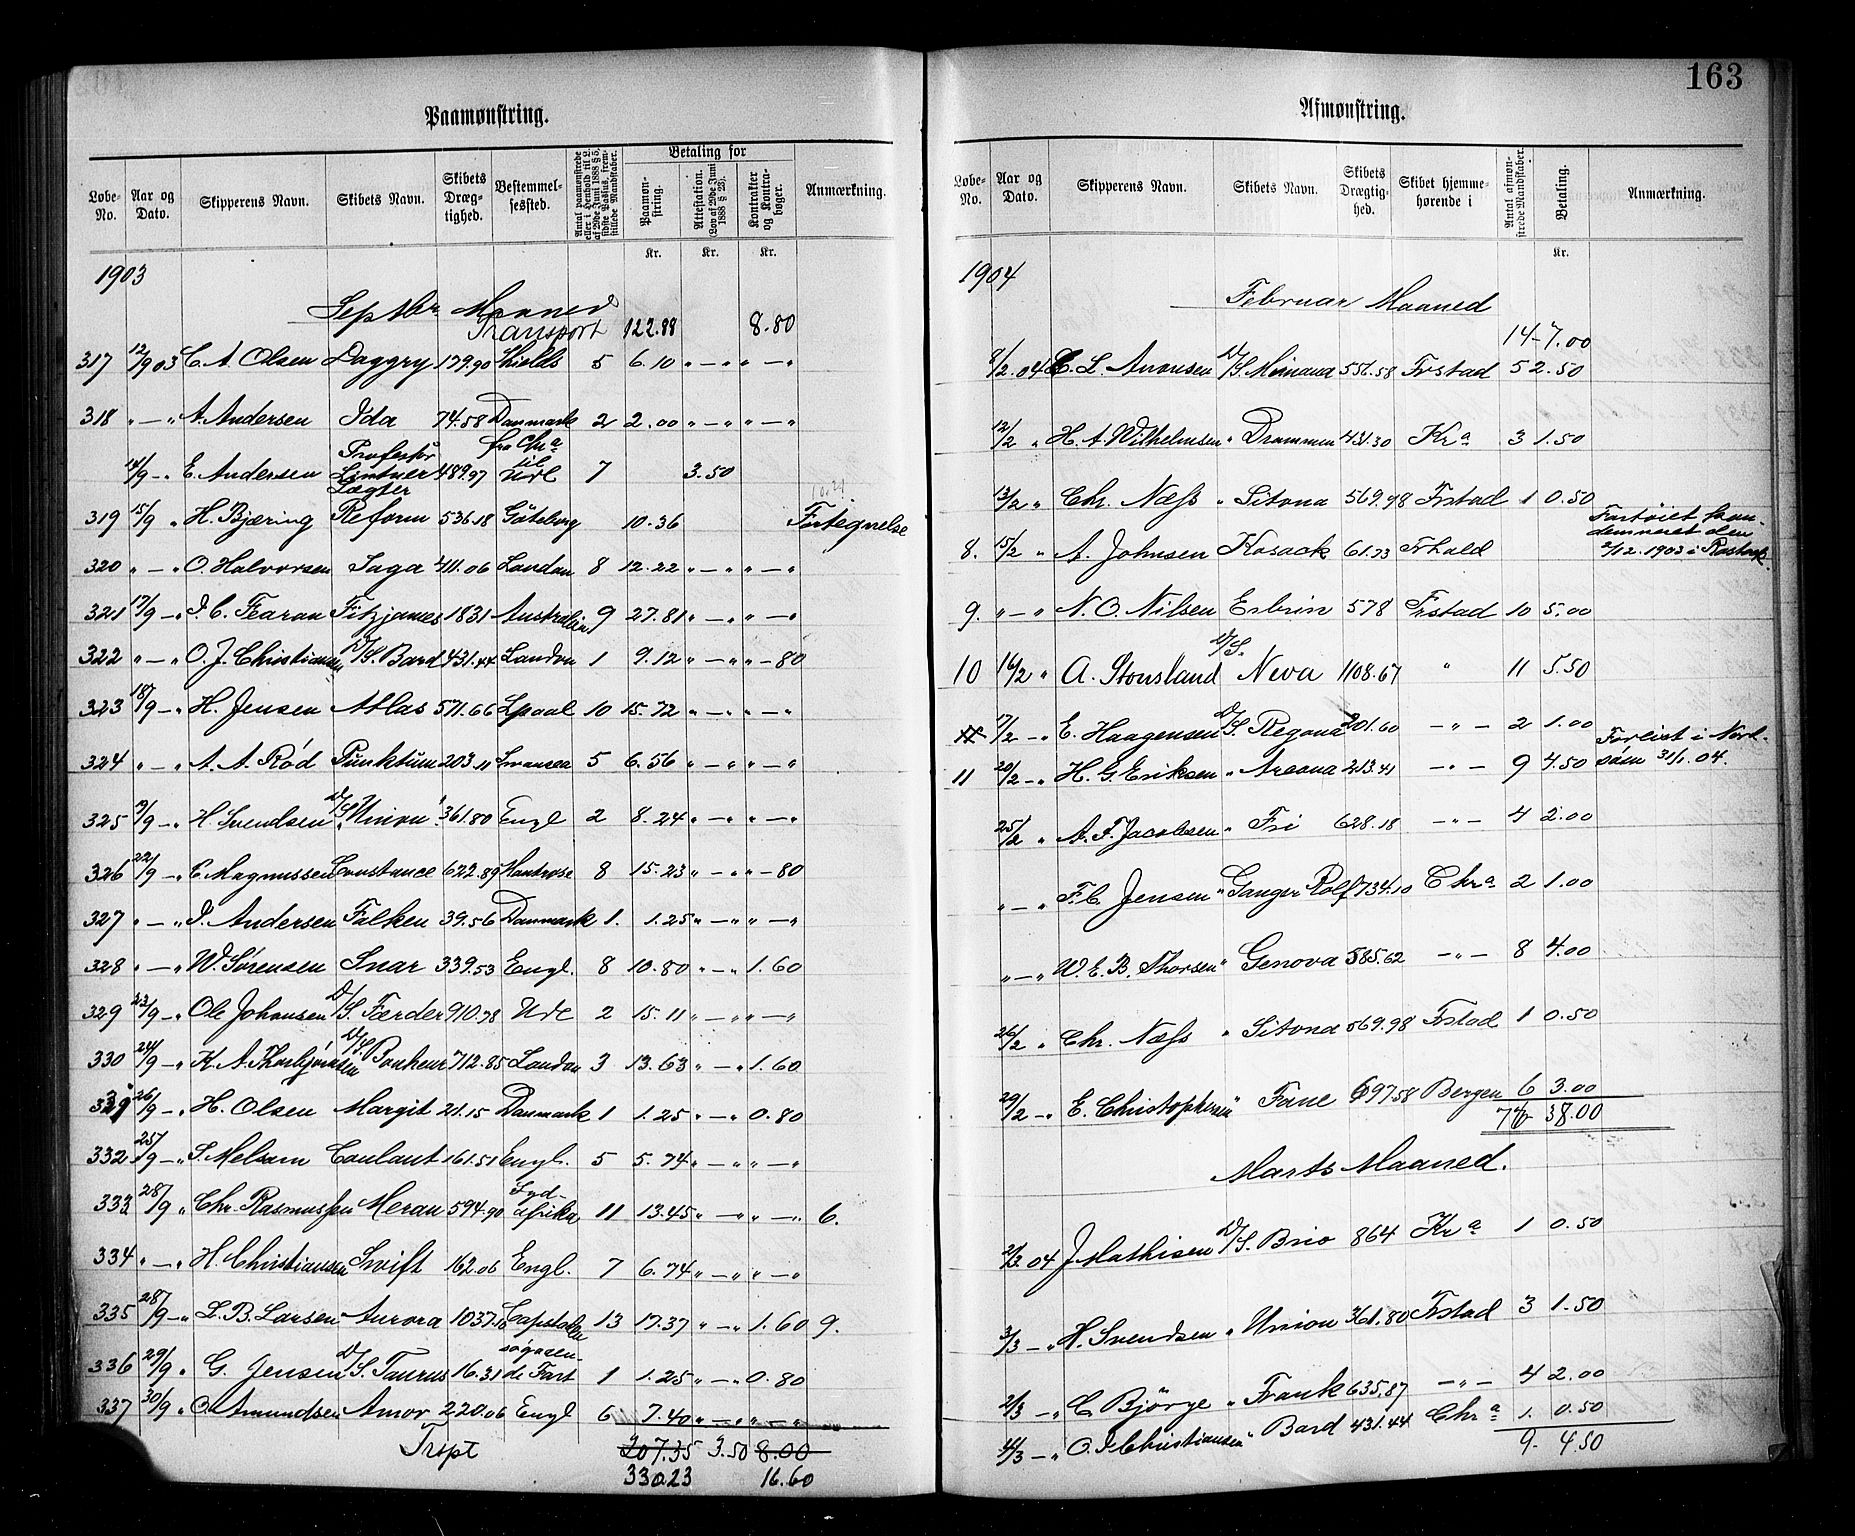 163
Paamønstring.
Løbe-No. Aar og Dato. Skipperens Navn. Skibets Navn. Skibets Dræg-tighed. Bestemmel-sessted. Antal paamønstrede eller i Henhold til 2. af 29de Juni 1888 § 5, sidste Passus, frem-stillede Mandskaber. Betaling for Paamøn-string. Attestation. (Lov af 29de Juni 1888 § 23). Kontrakter og Kontra-bøger. Anmærkning.
Kr. Kr. Kr.
1903
Septbr Maaned
Transport 122.88 8.80
317 12/9 03 C. A. Olsen Daggry 179.90 Shields 5 6.10 „ — „ „ — „
318 „ — „ A. Andersen Ida 74.58 Danmark 2 2.00 „ — „ „ — „
14/9 — „ E. Andersen Profestör Lintner Lægter 489.97 fra Chra til Udl 7 3.50
319 15/9 „ H. Bjæring Reform 536.18 Göteborg 10.36 Fortegnelse
320 „ — „ O. Halvorsen Saga 411.06 London 8 12.22 „ — „ „ — „
321 17/9 — „ J. C. Fearon Fitzjames 1831 Australien 9 27.81 „ — „ „ — „
322 „ — „ O. J. Christiansen D/S. Bard 431.44 London 1 9.12 „ — „ „ — 80
323 18/9 — „ H. Jensen Atlas 571.66 Lpool 10 15.72 „ — „ „ — „
324 „ — „ A. A. Röd Punktum 203.11 Swansea 5 6.56 „ — „ „ — „
325 9/9 — „ H. Svendsen D/S „Union" 361.80 Engl 2 8.24 „ — „ „ — „
326 22/9 — „ C. Magnussen Constance 622.89 Montrose 8 15.23 „ — „ „ — 80
327 „ — „ J. Andersen Falken 39.56 Danmark 1. 1.25 „ — „ „ — „
328 „ — „ W. Sörensen Snar 339.53 Engl. 8 10.80 „ — „ 1.60
329 23/9 — „ Ole Johansen D/S. Færder 910.78 Udl 2 15.11 „ — „ „ — „
330 24/9 — „ K. A. Thorbjörnsen D/S. Bonheur 712.85 London 3 13.63 „ — „ 1.60
331 26/9 — „ H. Olsen Margit 21.15 Danmark 1 1.25 „ — „ 0.80
332 25/9 — „ S. Melsom Coulant 161.51 Engl. 5 5.74 „ — „ „ — „
333 28/9 „ Chr. Rasmussen Meran 594.90 Syd-afrika 11 13.45 „ — „ „ — „ 6.
334 „ — „ H. Christiansen Swift 162.06 Engl. 7 6.74 „ — „ „ — „
335 28/9 — „ L. B. Larsen Aurora 1037.10 Capstaden 13 17.37 „ — „ 1.60 9.
336 29/9 „ G. Jensen D/S. Taurus 16.31 søgaaen-de Fart 1 1.25 „ — „ 0.80
337 30/9 „ O. Amundsen Amor 220.06 Engl 6 7.40 „ — „ „ — „
Trspt 207.35 3.50 8.00
330.23 16.60
Afmønstring.
Løbe-No. Aar og Dato. Skipperens Navn. Skibets Navn. Skibets Drægtig-hed. Skibet hjemme-hørende i Antal afmøn-strede Mandskaber. Betaling. Anmærkning.
Kr.
1904
Februar Maaned
14 – 7.00
8/2. 04 C. L. Aronsen D/S. Mimona 556.58 Frstad 5 2.50
12/2 „ H. A. Wilhelmsen „ Drammen 431.30 Kra 3 1.50
13/2 „ Chr. Næss „ Sitona 569.98 Frstad 1 0.50
8. 15/2 „ A. Johnsen Kosack 61.73 Frhald Fartöiet kon-demneret den 2/12. 1903 i Rostock.
9. „ — „ N. O. Nilsen Erbrin 578 Frstad 10 5.00
10 16/2 „ A. Stousland D/S. Neva 1108.67 „ 11 5.50
11 17/2 — „ E. Haagensen D/S. Regona 201.60 — „ — 2 1.00
11 20/2 — „ H. G. Eriksen „ Areona 213.41 — „ — 9 4.50 Forlist i Nord-söen 31/1. 04.
25/2 „ A. F. Jacobsen „ Fri 628.18 — „ — 4 2.00
„ — „ F. C. Jensen „ Ganger Rolf 734.10 Chra 2 1.00
„ — „ W. E. B. Thorsen „ Genova 585.62 — „ — 8 4.00
26/2 „ Chr. Næss „ Sitona 569.98 Frstad 1 0.50
29/2 — „ E. Christophersen „ Fane 697.58 Bergen 6 3.00
76 38.00
Marts Maaned.
2/3. 04 J. Mathisen D/S. Brio 864 Kra 1 0.50
3/3 — „ H. Svendsen „ Union 361.80 Frstad 3 1.50
2/3 — „ C. Björge „ Frank 635.87 — „ — 4 2.00
4/3 — „ O. J. Christiansen „ Bard 431.44 Chra 1. 0.50
9. 4.50